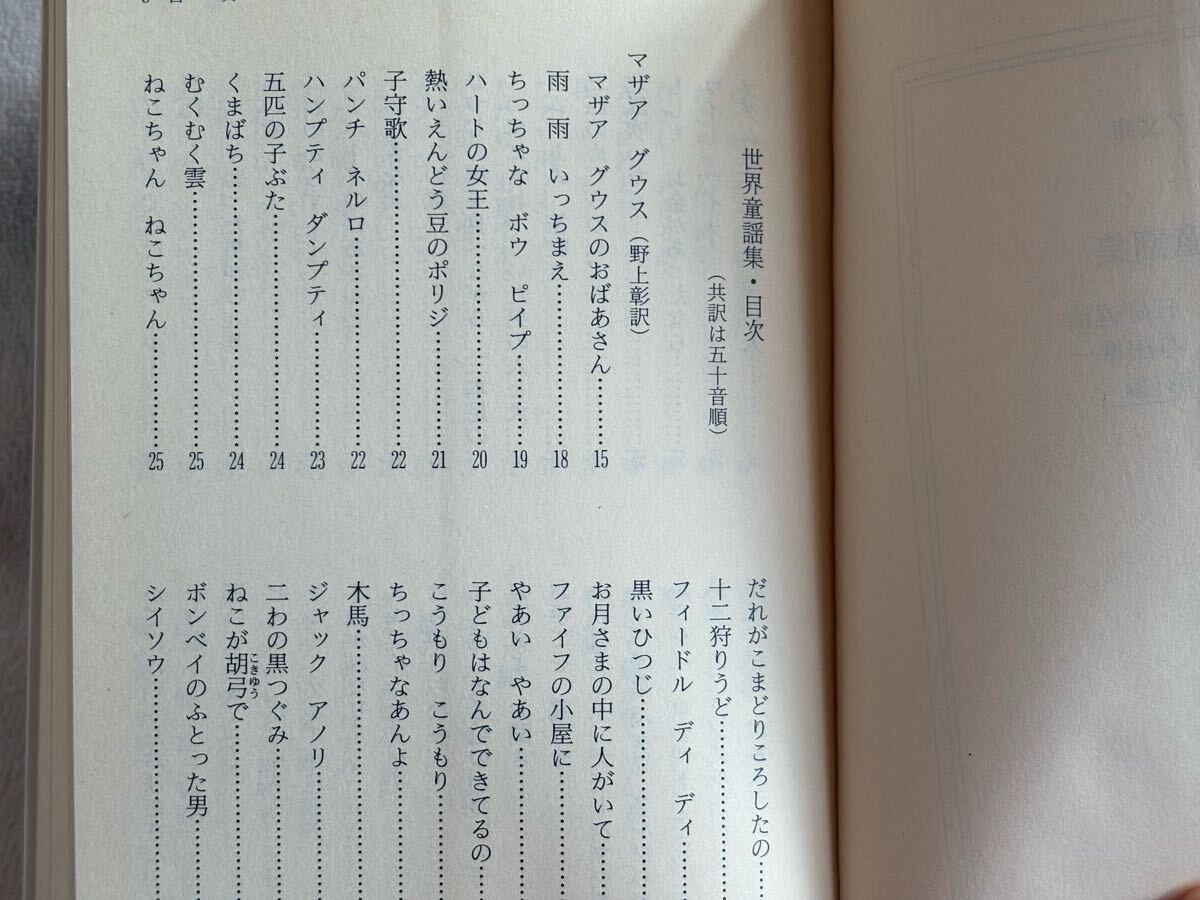 世界童謡集・目次
(共訳は五十音順)
マザア グウス(野上彰訳)
マザア グウスのおばあさん……………15
雨 雨 いっちまえ……………18
ちっちゃな ボウ ピイプ……………19
ハートの女王……………20
熱いえんどう豆のポリジ……………21
子守歌……………22
パンチ ネルロ……………22
ハンプティ ダンプティ……………23
五匹の子ぶた……………24
くまばち……………24
むくむく雲……………25
ねこちゃん ねこちゃん……………25
だれがこまどりころしたの……
十二狩りうど……………
フィードル ディ ディ……
黒いひつじ……………
お月さまの中に人がいて……
ファイフの小屋に……………
やあい やあい……………
子どもはなんでできてるの……
こうもり こうもり……………
ちっちゃなあんよ……………
木馬……………
ジャック アノリ……………
二わの黒つぐみ……………
ねこが胡弓こきゅうで……………
ボンベイのふとった男……
シイソウ……………